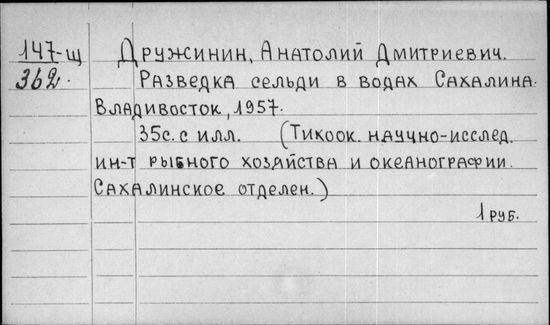 147-щ
362.
Дружинин, Анатолий Дмитриевич.
Разведка сельди в водах Сахалина.
Владивосток, 1957.
35с. с илл. (Тикоок. научно-исслед.
ин-т рыбного хозяйства и океанографии.
Сахалинское отделен.)
1 руб.